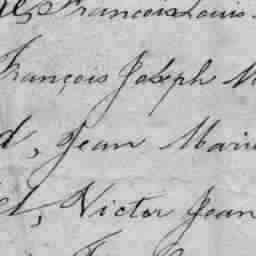 François Louis
François Joseph
d, Jean Marie
et, Victor Jean